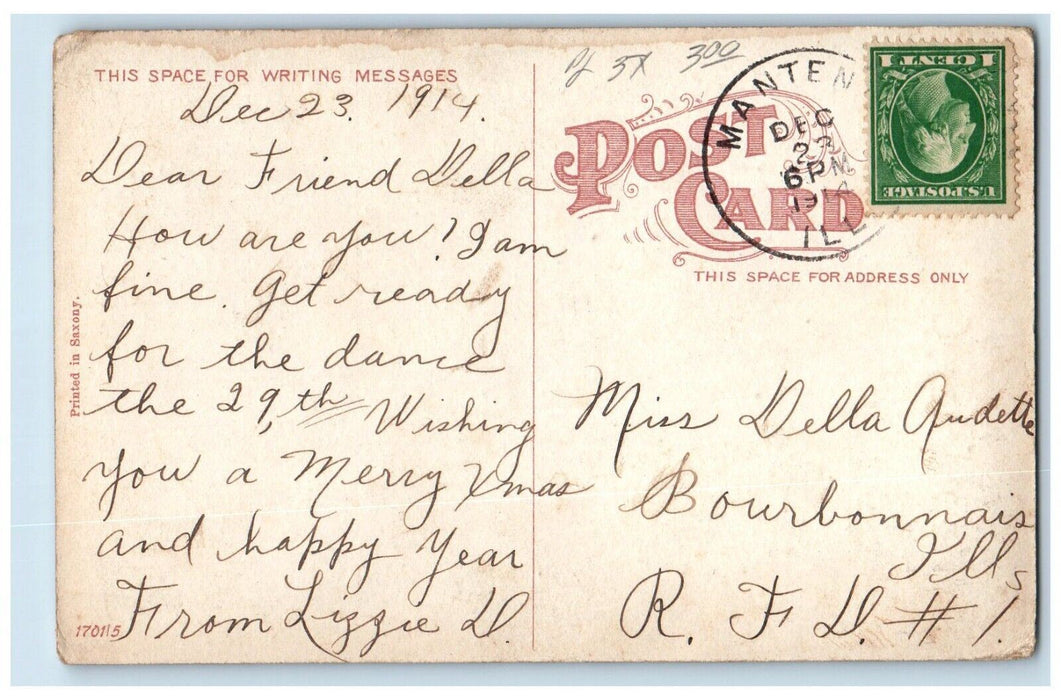 THIS SPACE FOR WRITING MESSAGES
Dec 23. 1914.
Dear Friend Della
How are you? I am
fine. Get ready
for the dance
the 29,th Wishing
you a Merry Xmas
and happy Year
From Lizzie D.
Printed in Saxony.
170115
3X 300
POST
CARD
THIS SPACE FOR ADDRESS ONLY
MANTEN
DEC
6 PM
ILL
1 CENT 1
U.S. POSTAGE
Miss Della Audette
Bourbonnais
Ills
R. F. D. # 1.